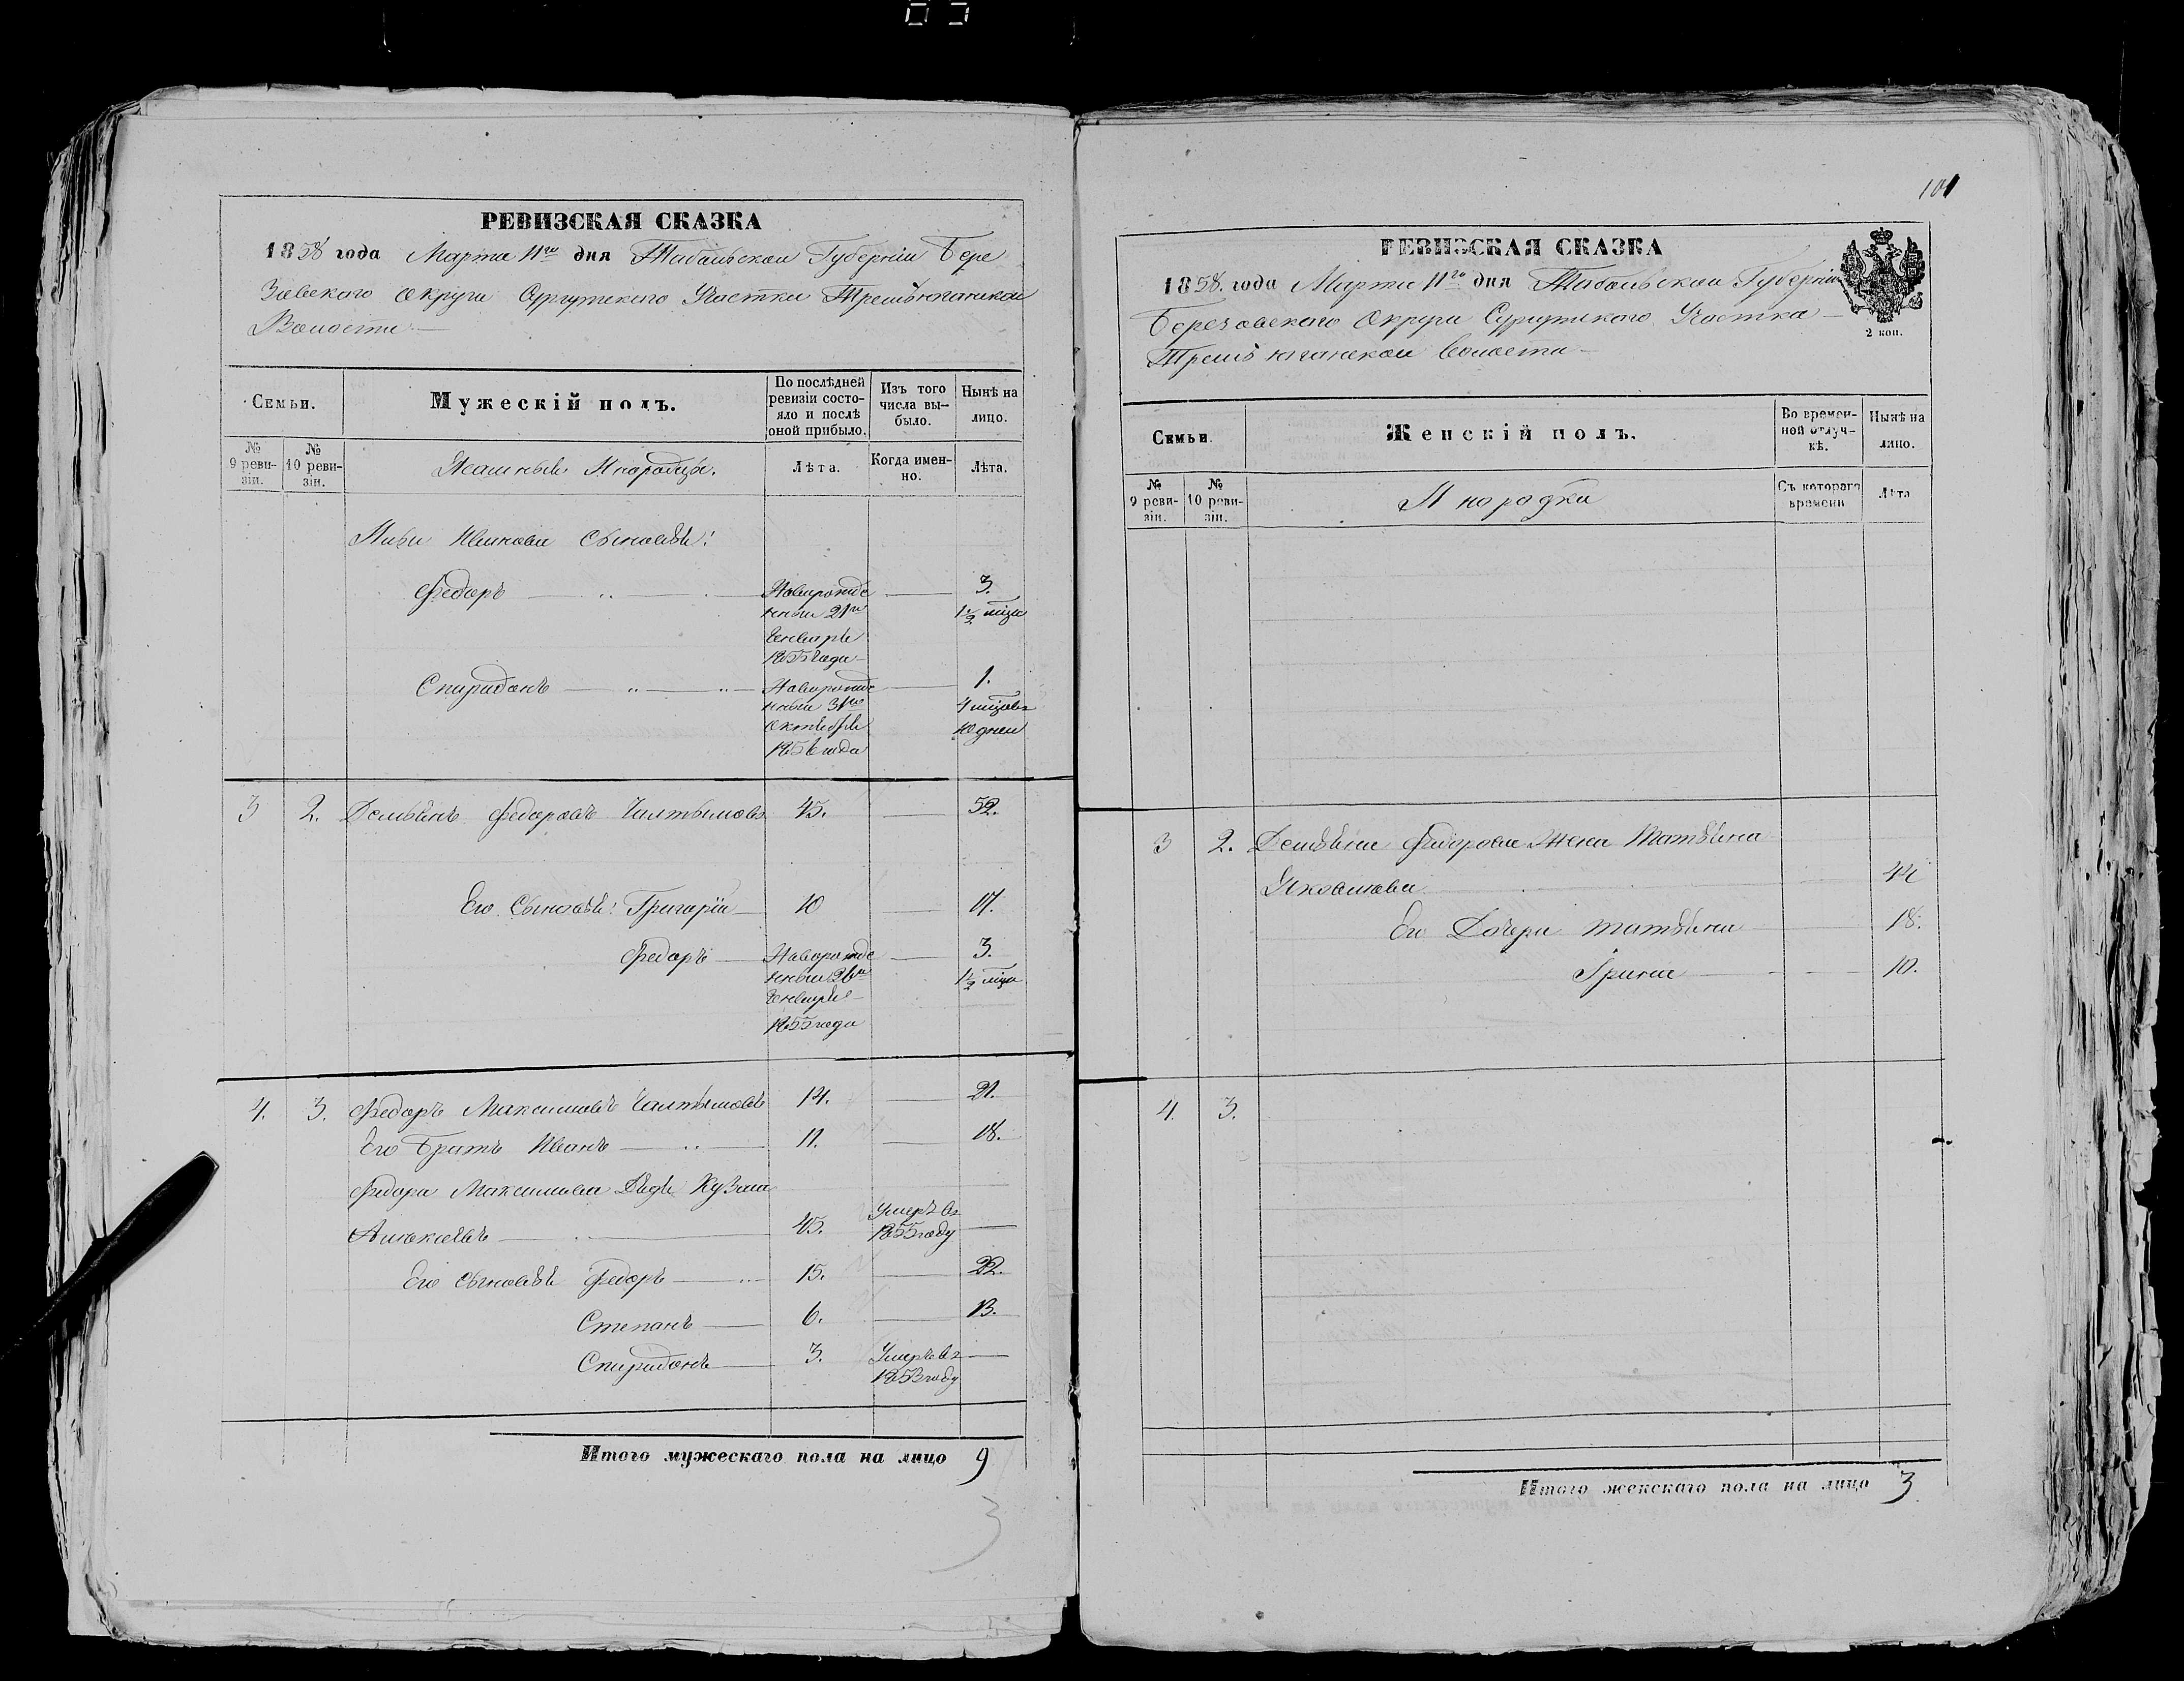 РЕВИЗСКАЯ СКАЗКА
1858 года Марта 11го дня Тобольской Губерніи Бере
зовского Округа Сургутского Участка Трехъюганской
Волости
Семьи.
Мужескій полъ.
По послѣдней ревизіи состо-
яло и послѣ оной прибыло.
Изъ того числа вы-
было.
Нынѣ на лицо.
№ 9 реви-
зіи.
№ 10 реви-
зіи.
Ясашные Инородцы.
Лѣта.
Когда имен-
но.
Лѣта.
Ивановы Сыновья:
Федоръ Новорожде 3.
нный 21го 1½ мѣца
Генваря
1855 года
Спиридонъ Новорожде 1.
нный 31го 4 мѣцовъ
Октября 10 дней
1856 года
3 2. Федоровъ 45. 52.
Его Сыновья: Григорій 10 17.
Федоръ Новорожде 3.
нный 26го 1½ мѣца
Генваря
1855 года
4. 3. Федоръ Максимовъ 14. 21.
Его Братъ Иванъ 11. 18.
Федора Максимова Дядя Кузьма
45. Умеръ въ
1855 году
Его сыновья Федоръ 15. 22.
Степанъ 6. 13.
Спиридонъ 3. Умеръ въ
1853 году
Итого мужескаго пола на лицо 9
3
101
РЕВИЗСКАЯ СКАЗКА
1858. года Марта 11го дня Тобольской Губерніи
Березовского Округа Сургутского Участка
Трехъюганской Волости
2 коп.
Семьи.
Женскій полъ.
Во времен-
ной отлуч-
кѣ.
Нынѣ на лицо.
№ 9 реви-
зіи.
№ 10 реви-
зіи.
Инородки
Съ котораго времени
Лѣта
3 2. Федорова Жена Татьяна
Яковлева 44
Его Дочери Татьяна 18.
Ирина 10.
4. 3.
Итого женскаго пола на лицо 3